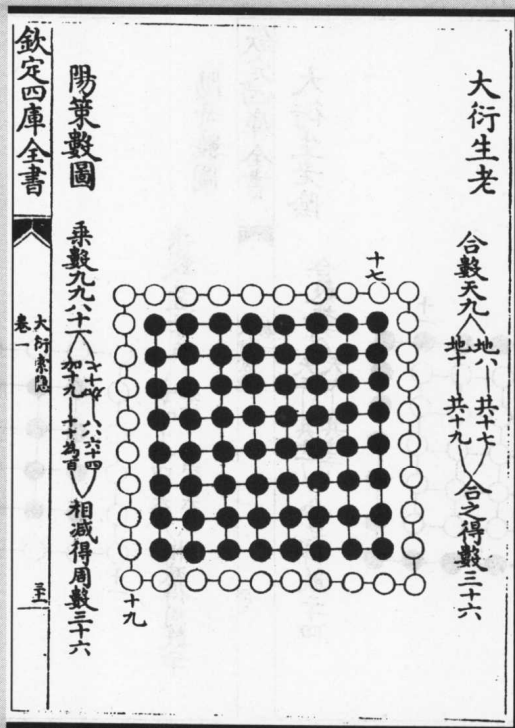 大衍生老
合數天九
地八 共十七
地十 共十九
合之得數三十六
十七
十九
陽策數圖
乘數九九八十一
八八六十四
加十九
十十為百
相減得周數三十六
欽定四庫全書
大衍索隱
卷一